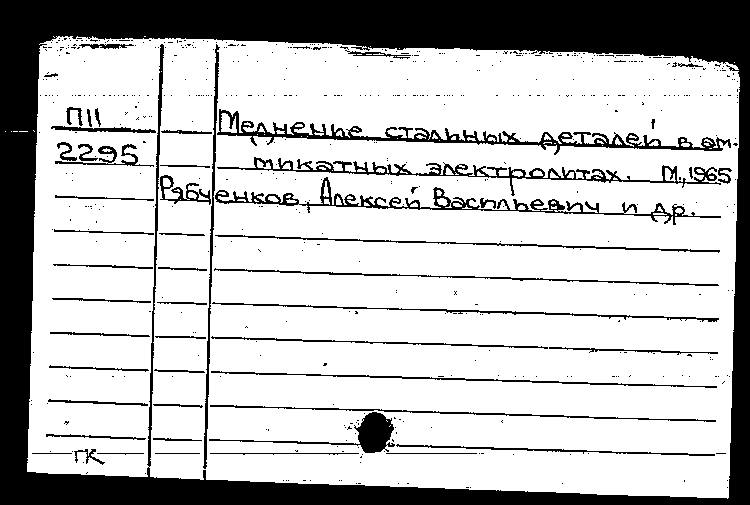 П11
Меднение стальных деталей в эт-
2295
тикатных электролитах. М., 1965
Рябченков, Алексей Васильевич и др.
ГК